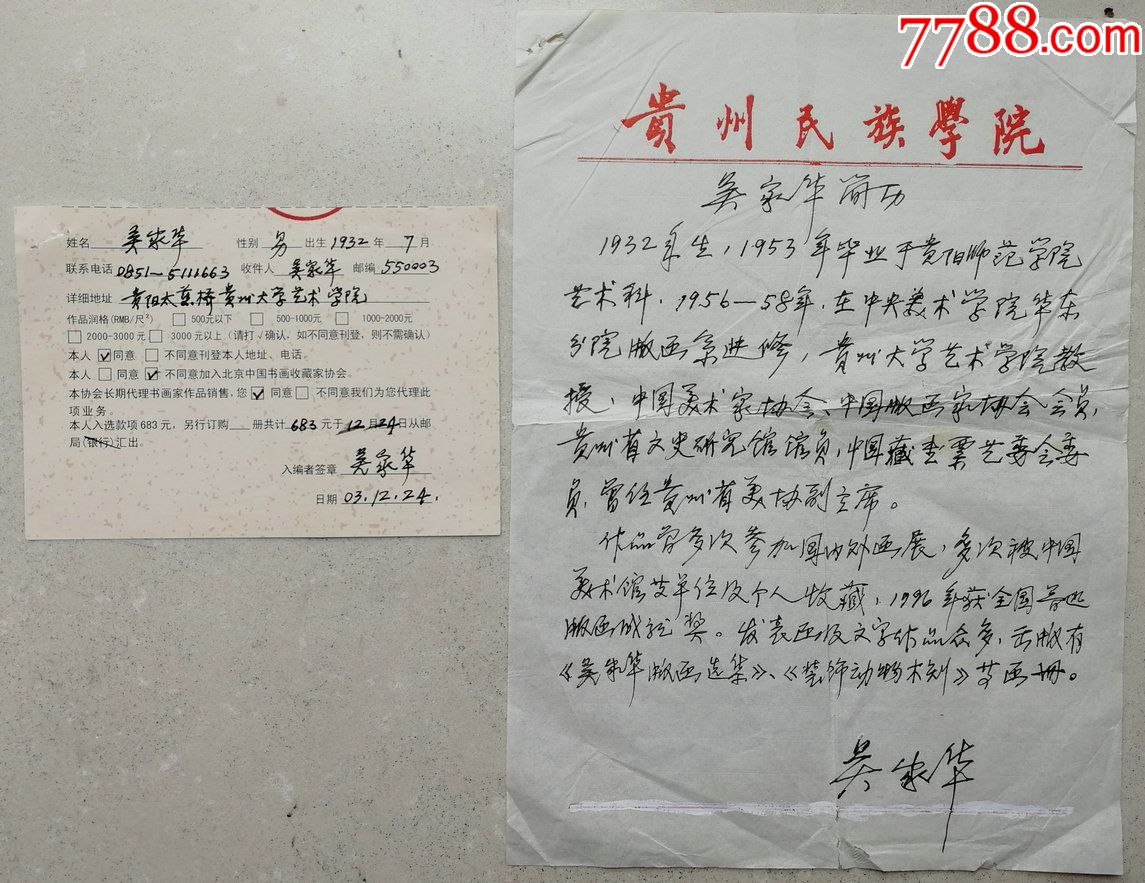 7788.com
姓名 吴家华 性别 男 出生 1932 年 7 月
联系电话 0851-5111663 收件人 吴家华 邮编 550003
详细地址 贵阳太慈桥贵州大学艺术学院
作品润格(RMB/尺²) □ 500元以下 □ 500-1000元 □ 1000-2000元
□ 2000-3000元 □ 3000元以上(请打√确认,如不同意刊登,则不需确认)
本人 ☑ 同意 □ 不同意刊登本人地址、电话。
本人 □ 同意 ☑ 不同意加入北京中国书画收藏家协会。
本协会长期代理书画家作品销售,您 ☑ 同意 □ 不同意我们为您代理此
项业务。
本人入选款项683元,另行订购 册共计 683 元于 12 月 24 日从邮
局(银行)汇出。
入编者签章 吴家华
日期 03.12.24.
贵州民族學院
吴家华简历
1932年生,1953年毕业于贵阳师范学院
艺术科,1956—58年,在中央美术学院华东
分院版画系进修,贵州大学艺术学院教
授、中国美术家协会、中国版画家协会会员,
贵州省文史研究馆馆员,中国藏书票艺委会委
员,曾任贵州省美协副主席。
作品曾多次参加国内外画展,多次被中国
美术馆等单位及个人收藏,1996年获全国鲁迅
版画成就奖。发表画及文字作品众多,出版有
《吴家华版画选集》、《装饰动物木刻》等画册。
吴家华